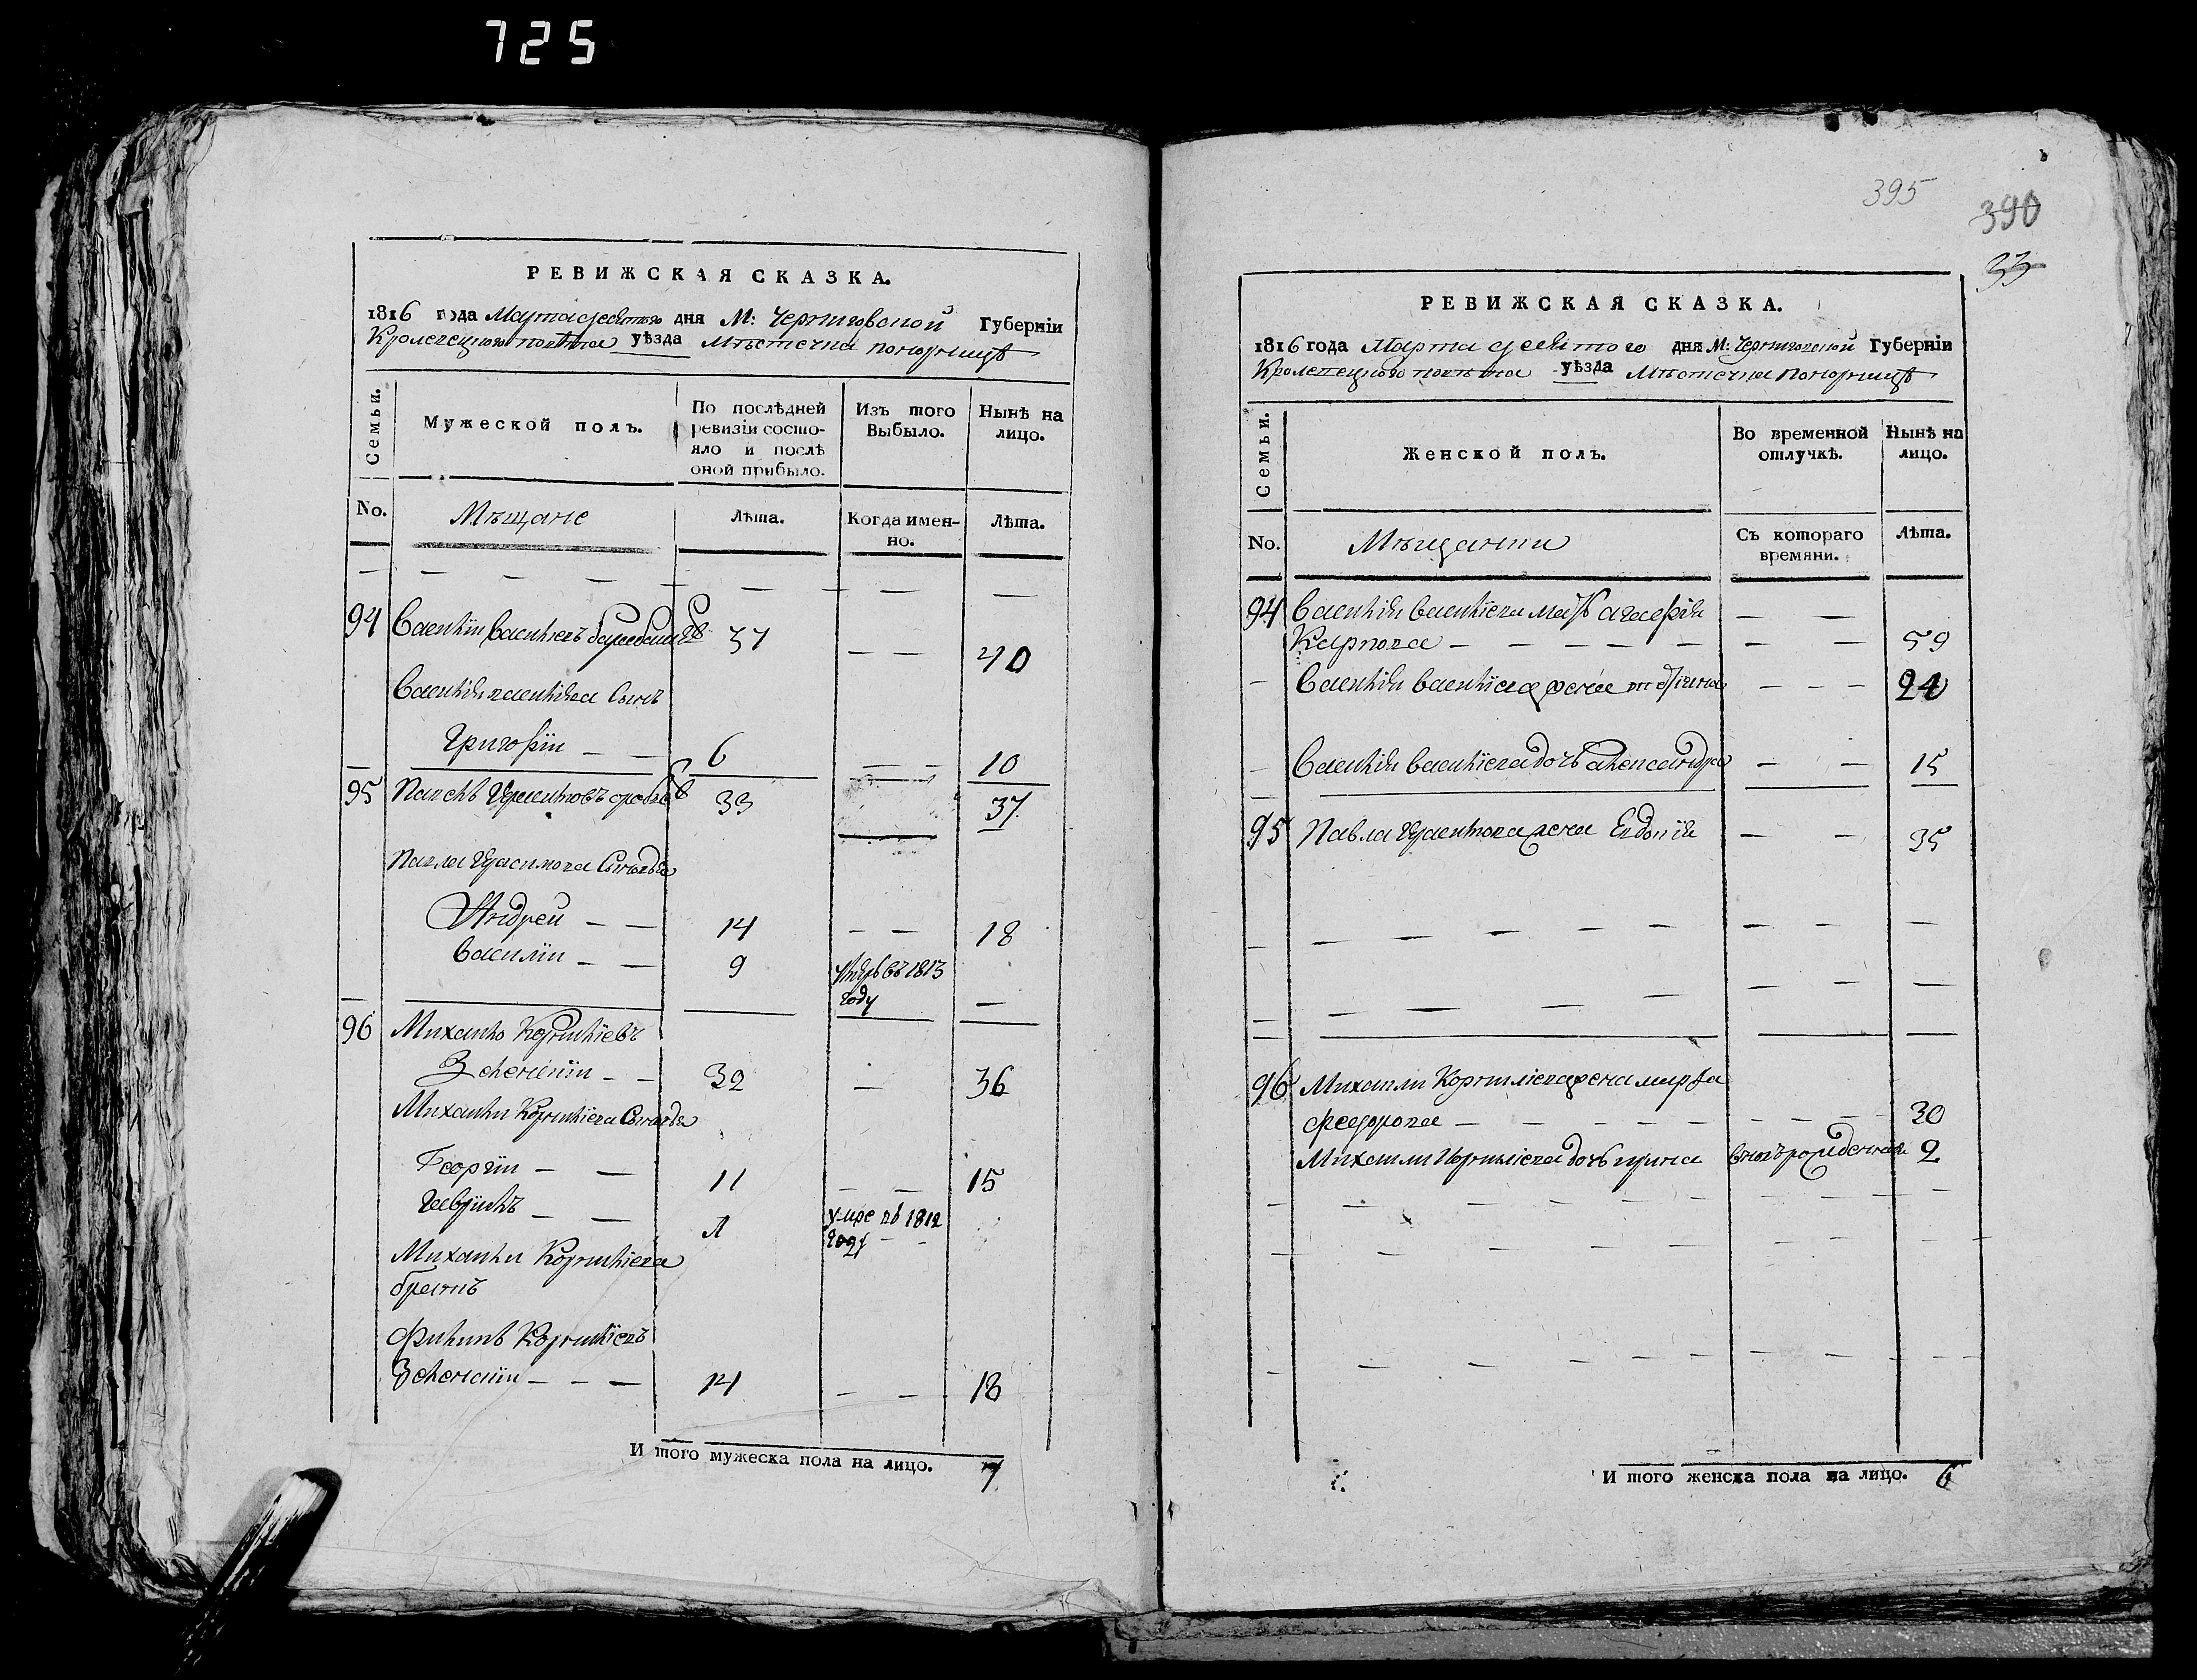 725
РЕВИЖСКАЯ СКАЗКА.
1816 года Марта десятого дня М: Черниговской Губерніи
Кролевецкого повѣта уѣзда Мѣстечка Понорницѣ
Семьи.
Мужеской полъ.
По послѣдней ревизіи состояло и послѣ оной прибыло.
Изъ того Выбыло.
Нынѣ на лицо.
No.
Мѣщане
Лѣта.
Когда именно.
Лѣта.
94 Василіи Василіевъ 37 40
Василія василіева Сынъ
Григорїи 6 10
95 Павелъ 33 37
Павла Герасимова Сыновья
Андреи 14 18
Василіи 9 въ 1813
году
96 Михаило Корнилїевъ
Зеленскїи 32 36
Михаила Корнилїева Сыновья
Георгїи 11 15
Гаврїилъ умре въ 1812
году
Михаила Корнилїева
братъ
Филипъ Корнилїевъ
Зеленскїи 14 18
И того мужеска пола на лицо. 7
395
390
33
РЕВИЖСКАЯ СКАЗКА.
1816 года Марта десятого дня М: Черниговской Губерніи
Кролевецкого повѣта уѣзда Мѣстечка Понорницѣ
Семьи.
Женской полъ.
Во временной отлучкѣ.
Нынѣ на лицо.
No.
Мѣщанки
Съ котораго времяни.
Лѣта.
94 Василія Василїева мать Агафія
Карпова 59
Василія Василїева жена 24
Василія Василїева дочь Александра 15
95 Павла Герасимова жена Евдокїя 35
96 Михаила Корнилїева жена Марфа
Федорова 30
Михаила Корнилїева дочь Ирина вновърожденная 2
И того женска пола на лицо. 6